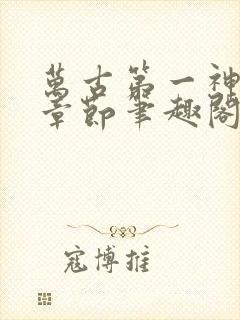 萬古第一神
章節筆趣閣
寇博推